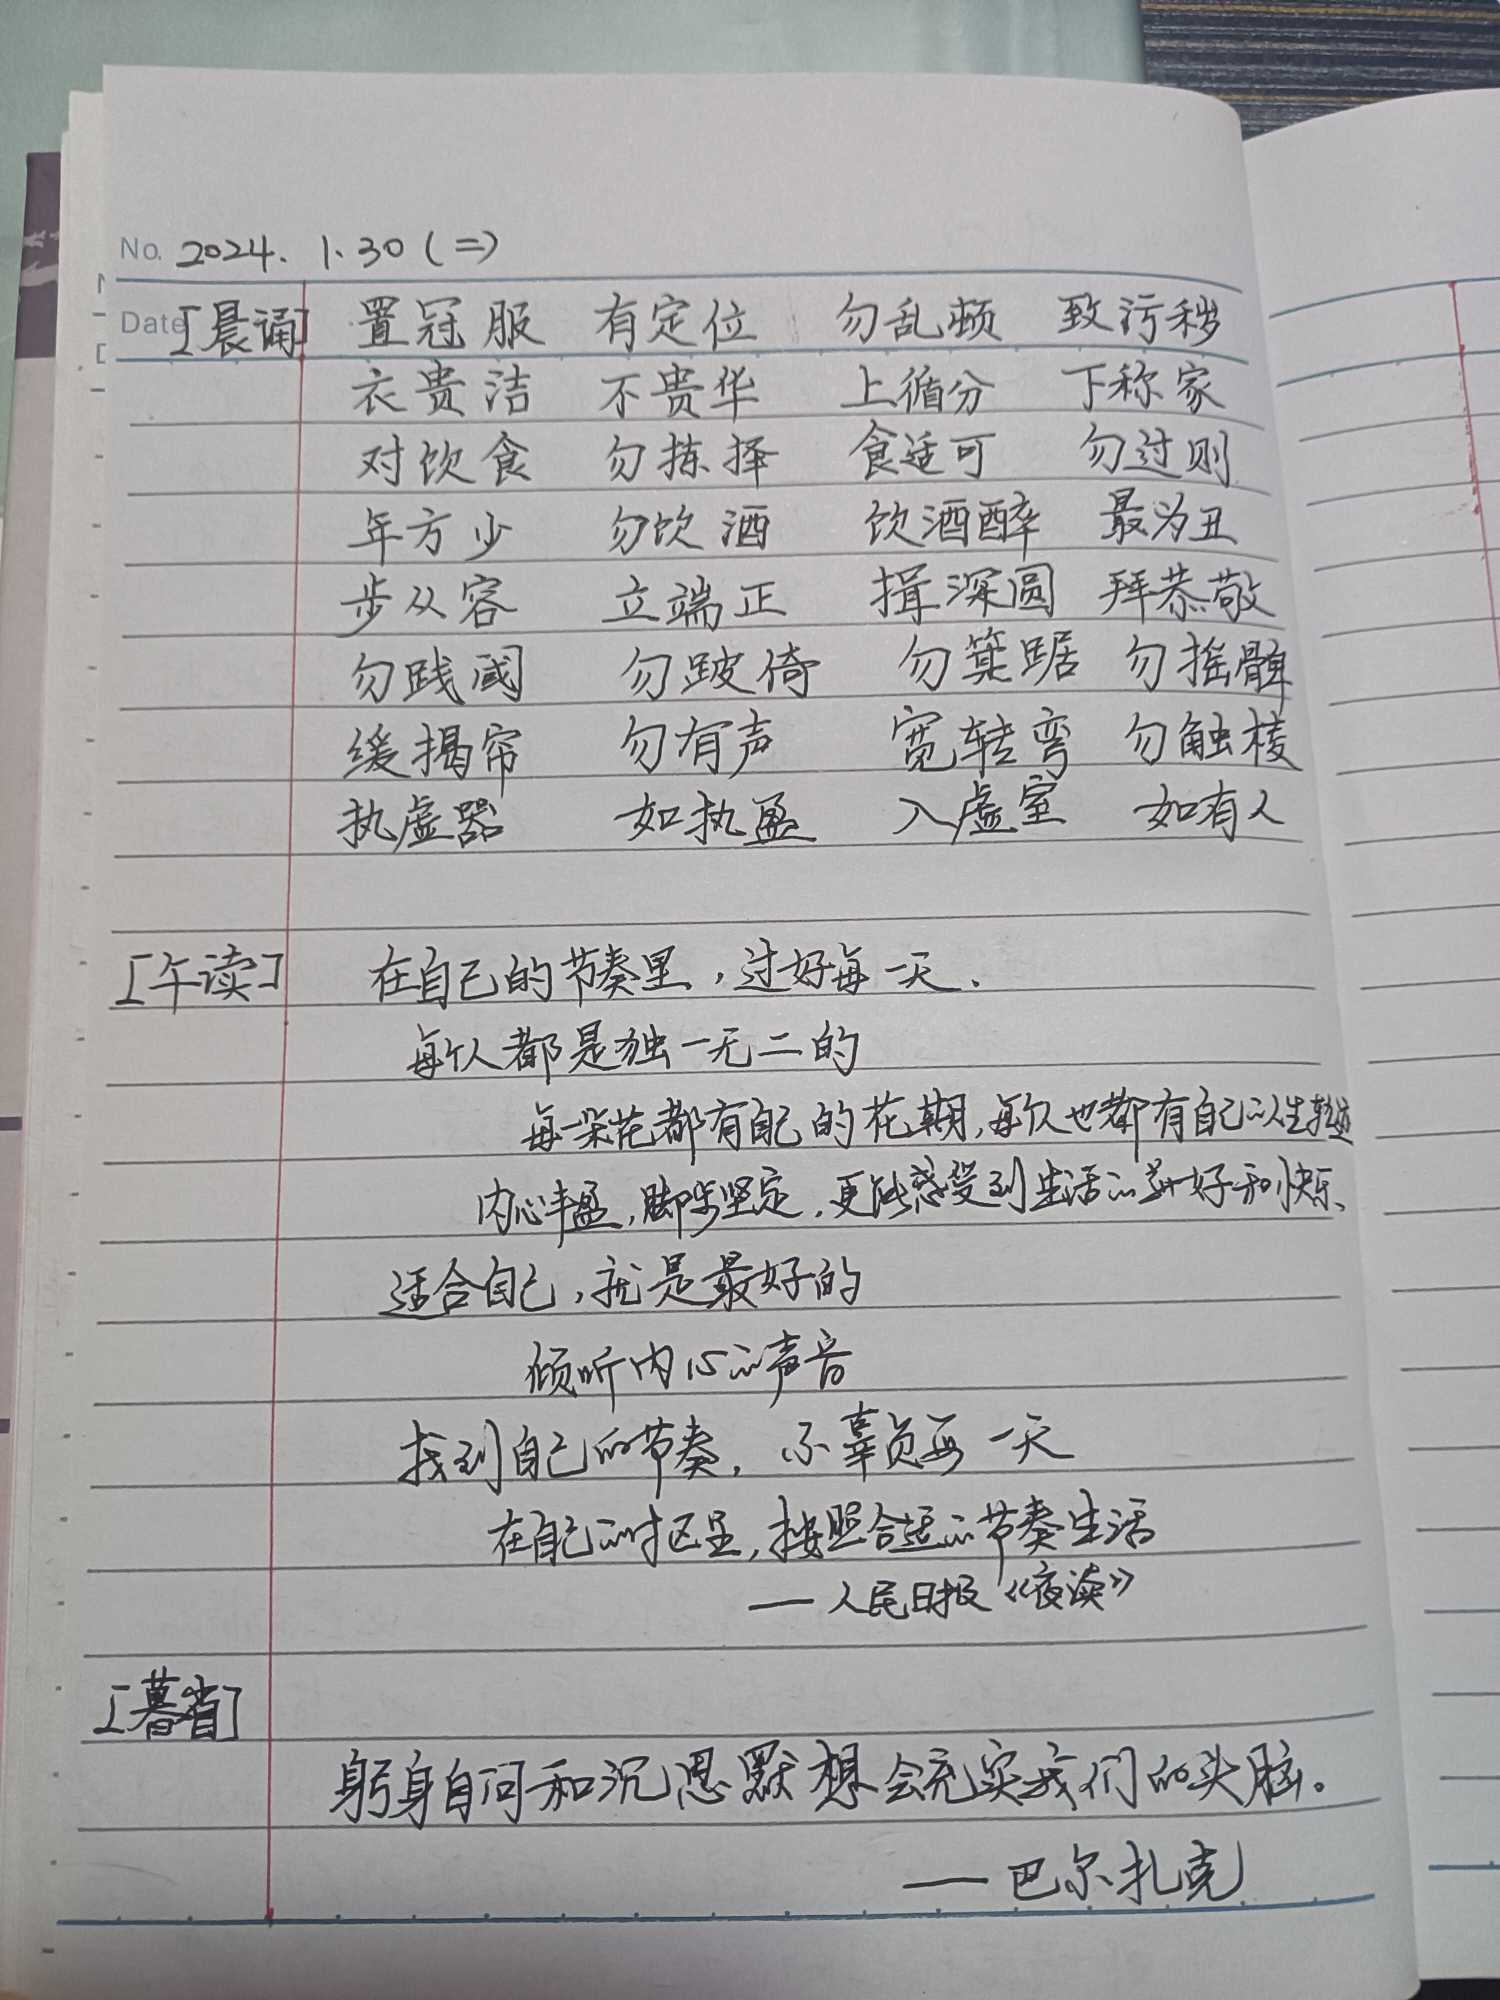 No. 2024. 1.30 (二)
Date [晨诵] 置冠服 有定位 勿乱顿 致污秽
衣贵洁 不贵华 上循分 下称家
对饮食 勿拣择 食适可 勿过则
年方少 勿饮酒 饮酒醉 最为丑
步从容 立端正 揖深圆 拜恭敬
勿践阈 勿跛倚 勿箕踞 勿摇髀
缓揭帘 勿有声 宽转弯 勿触棱
执虚器 如执盈 入虚室 如有人
[午读] 在自己的节奏里，过好每一天.
每个人都是独一无二的
每一朵花都有自己的花期,每个人也都有自己的人生轨迹
内心丰盈,脚步坚定,更能感受到生活的美好和快乐、
适合自己,就是最好的
倾听内心的声音
找到自己的节奏,不辜负每一天
在自己的时区里,按照合适的节奏生活
— 人民日报《夜读》
[暮省]
躬身自问和沉思默想会充实我们的头脑。
— 巴尔扎克